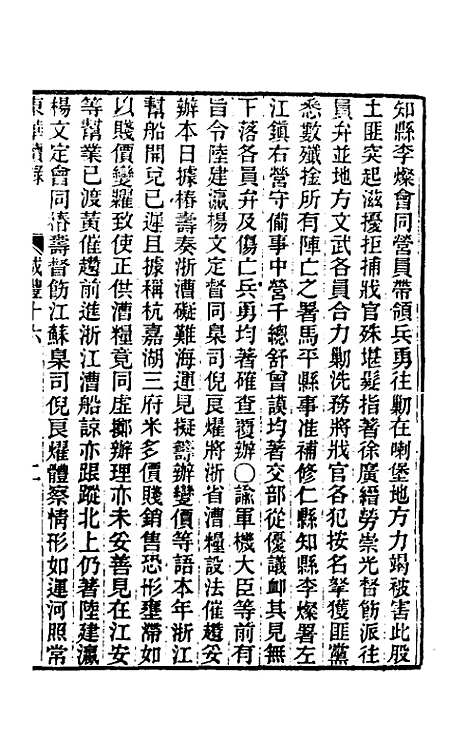 知縣李燦會同營員帶領兵勇往勦在喇堡地方力竭被害此股
土匪突起滋擾拒捕戕官殊堪髮指著徐廣縉勞崇光督飭派往
員弁並地方文武各員合力勦洗務將戕官各犯按名拏獲匪黨
悉數殲捦所有陣亡之署馬平縣事准補修仁縣知縣李燦署左
江鎮右營守備事中營千總舒曾謨均著交部從優議卹其見無
下落各員弁及傷亡兵勇均著確查覆辦〇諭軍機大臣等前有
旨令陸建瀛楊文定督同臬司倪良燿將浙省漕糧設法催趲妥
辦本日據椿壽奏浙漕礙難海運見擬籌辦變價等語本年浙江
幫船開兌已遲且據稱杭嘉湖三府米多價賤銷售恐形壅滯如
以賤價變糶致使正供漕糧竟同虛擲辦理亦未妥善見在江安
等幫業已渡黃催趲前進浙江漕船諒亦跟蹤北上仍著陸建瀛
楊文定會同椿壽督飭江蘇臬司倪良燿體察情形如運河照常
東華續錄 咸豐十六 二